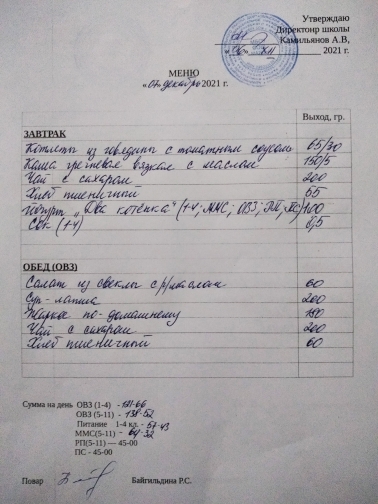 Утверждаю
Директонр школы
Камильянов А.В,
2021 г.
МЕНЮ
«07» декабря 2021 г.
Выход, гр.
ЗАВТРАК
Котлеты из говядины с томатным соусом 65/30
Каша гречневая вязкая с маслом 150/5
Чай с сахаром 200
Хлеб пшеничный
Йогурт „Два котёнка" (1-4; ММС; ОВЗ; РП; ПС) 100
Сок (1-4) 0,5
ОБЕД (ОВЗ)
Салат из свеклы с р/маслом 60
Суп-лапша 200
Жаркое по-домашнему
Чай с сахаром 200
Хлеб пшеничный 60
Сумма на день ОВЗ (1-4) -
ОВЗ (5-11) - 138-52
Питание 1-4 кл. - 57-43
ММС(5-11) - 64-32
РП(5-11) — 45-00
ПС - 45-00
Повар Байгильдина Р.С.